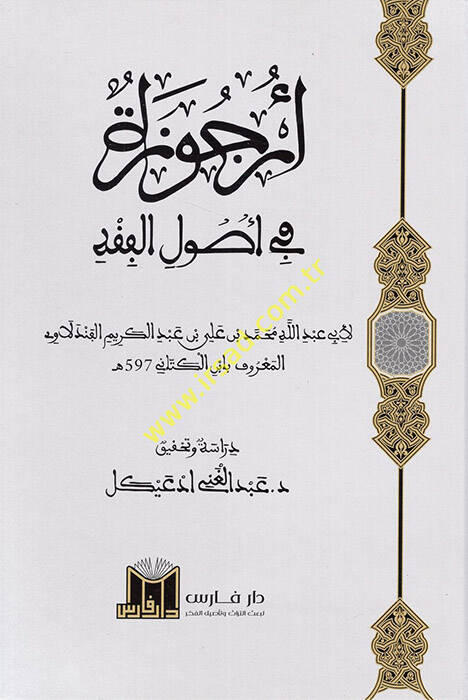 أرجوزة
في أصول الفقه
لأبي عبد الله محمد بن علي بن عبد الكريم الفندلاوي
المعروف بابن الكتاني 597هـ
دراسة وتحقيق
د. عبد الغني ادعيكل
دار فارس
لبعث التراث وتأصيل الفكر
دار فارس
www.irsad.com.tr